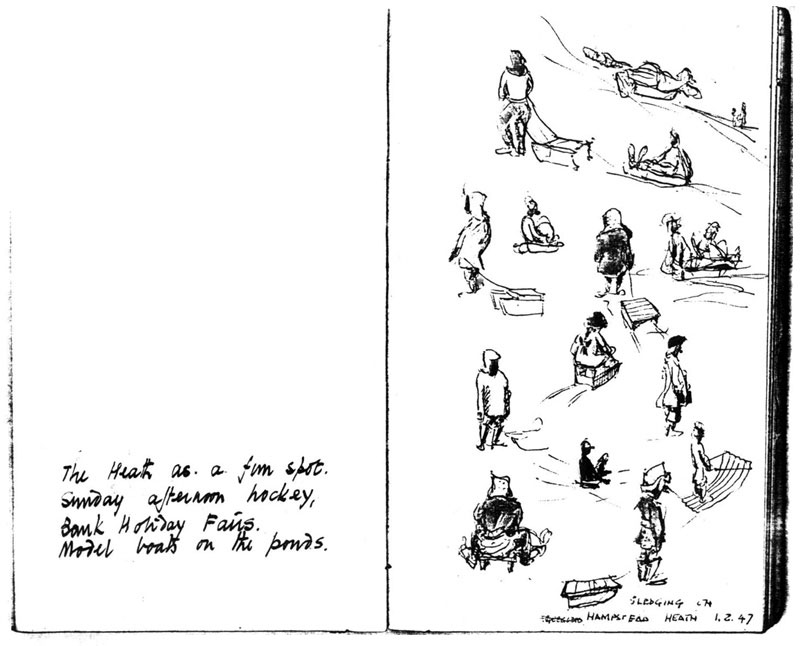 The Heath as. a. fun spot.
Sunday afternoon hockey,
Bank Holiday Fairs.
Model boats on the ponds.
SLEDGING ON
HAMPSTEAD HEATH 1.2.47